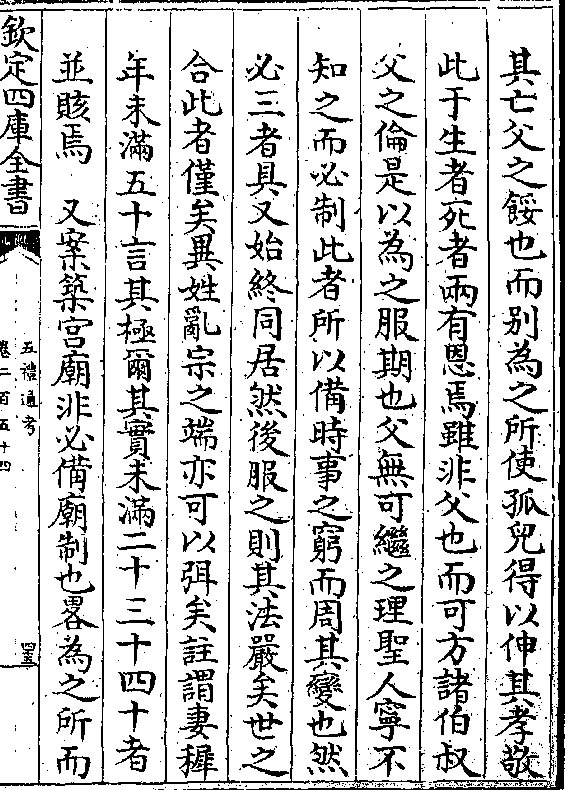 其亡父之餒也而别為之所使孤兒得以伸其孝敬
此于生者死者兩有恩焉雖非父也而可方諸伯叔
父之倫是以為之服期也父無可繼之理聖人寧不
知之而必制此者所以備時事之窮而周其變也然
必三者具又始終同居然後服之則其法嚴矣世之
合此者僅矣異姓亂宗之端亦可以弭矣註謂妻穉
年未滿五十言其極爾其實未滿二十三十四十者
並賅焉　又案築宫廟非必備廟制也畧為之所而
欽定四庫全書
五禮通考
卷二百五十四